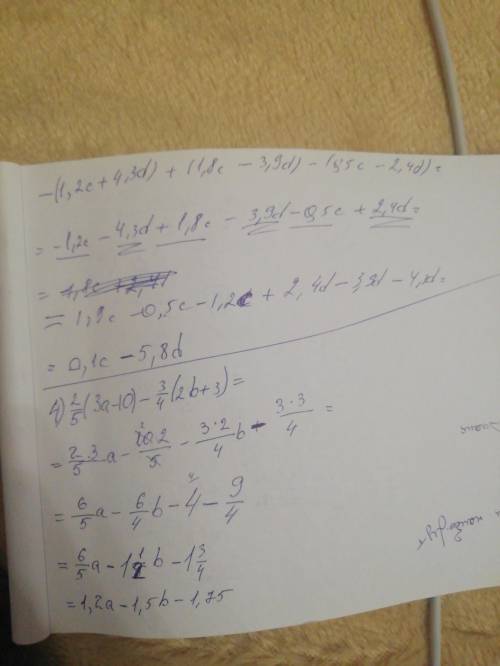 -(1,2c + 4,3d) + (1,8c - 3,9d) - (0,5c - 2,4d) =
= -1,2c - 4,3d + 1,8c - 3,9d - 0,5c + 2,4d =
= 1,8c - 0,5c - 1,2c + 2,4d - 3,9d - 4,3d =
= 0,1c - 5,8d
4) 2/5 (3a - 10) - 3/4 (2b + 3) =
= 2·3/5 a - 10·2/5 - 3·2/4 b - 3·3/4 =
= 6/5 a - 6/4 b - 4 - 9/4
= 6/5 a - 1 1/2 b - 1 3/4
= 1,2a - 1,5b - 1,75